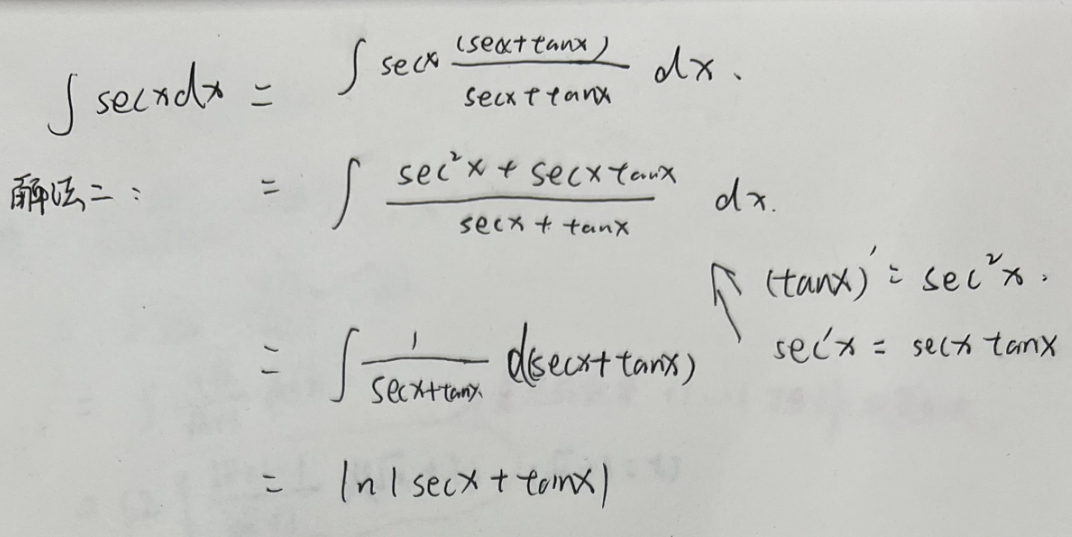 ∫ secxdx = ∫ secx (secx+tanx)/(secx+tanx) dx.
解法二: = ∫ (sec²x + secxtanx)/(secx + tanx) dx.
(tanx)' = sec²x.
sec'x = secx tanx
= ∫ 1/(secx+tanx) d(secx+tanx)
= ln|secx+tanx|